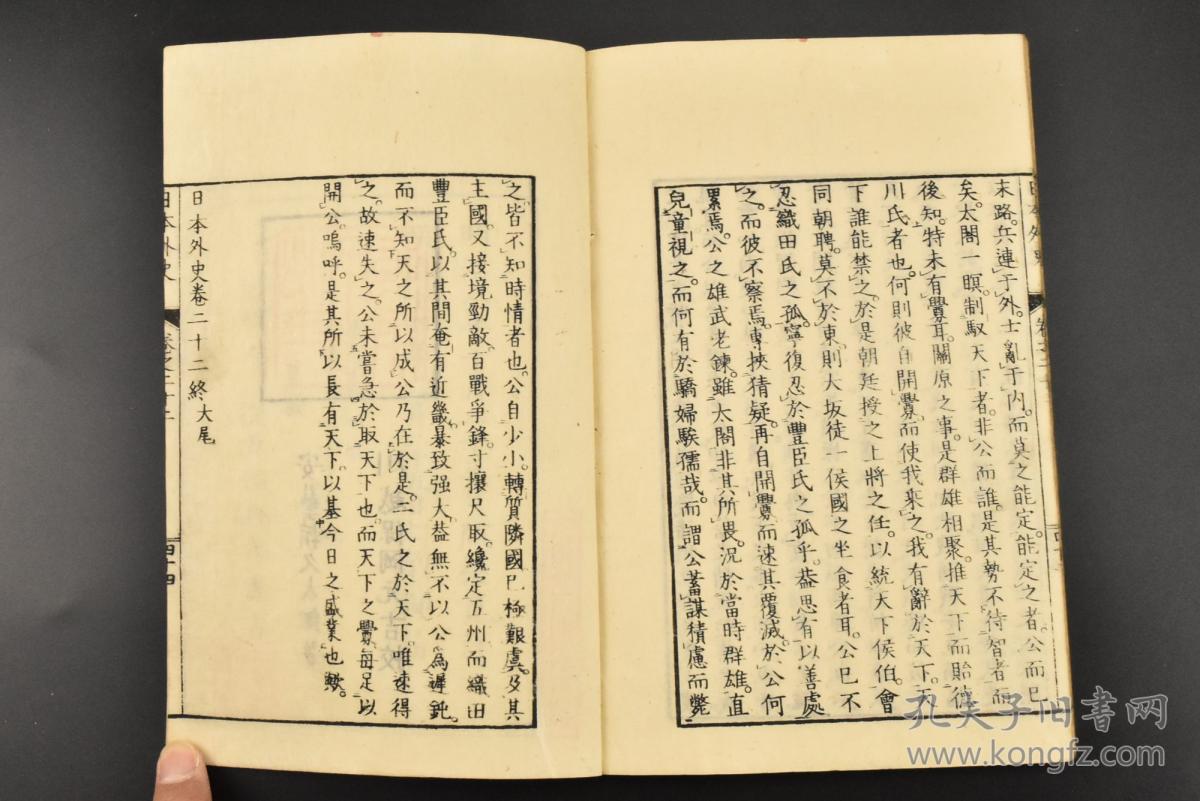 末路。兵連于外。士亂于内。而莫之能定。能定之者。公而已
矣。太閤一瞑。制馭天下者。非公而誰。是其勢不待智者而
後知。特未有釁耳。關原之事。是群雄相聚。推天下而貽德
川氏者也。何則彼自開釁。而使我來之。我有辭於天下。天
下誰能禁之。於是朝廷授之上將之任。以統天下侯伯。會
同朝聘。莫不於東。則大坂徒一侯國之坐食者耳。公已不
忍織田氏之孤。寧復忍於豐臣氏之孤乎。葢思有以善處
之。而彼不察焉。專挾猜疑。再自開釁。而速其覆滅。於公何
累焉。公之雄武老鍊。雖太閤非其所畏。況於當時群雄。直
兒童視之。而何有於驕婦騃孺哉。而謂公蓄謀積慮而斃
之。皆不知時情者也。公自少小。轉質隣國。已極艱虞。及其
主國。又接境勁敵。百戰爭鋒。寸攘尺取。纔定五州。而織田
豐臣氏。以其間奄有近畿。暴致强大。葢無不以公為遲鈍。
而不知天之所以成公乃在於是。二氏之於天下。唯速得
之。故速失之。公未嘗急於取天下也。而天下之釁。每足以
開公。嗚呼。是其所以長有天下。以基今日之盛業也歟。
日本外史卷二十二終大尾
日本外史
卷之二十二
四十四
孔夫子旧书网
www.kongfz.com